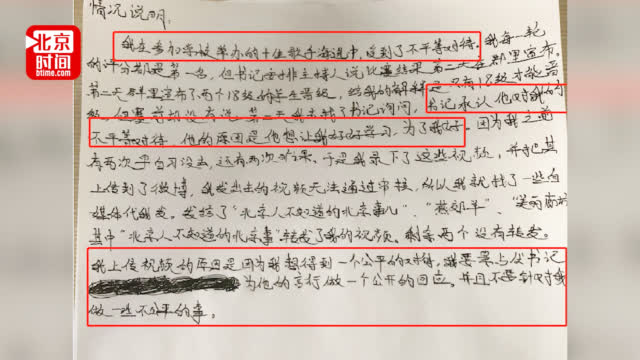 北京
时间
btime.com
情况说明:
我在参加学校举办的十佳歌手海选中,受到了不平等对待。我每一轮
的评分都是第一名,但书记安排主持人说比赛结果第二天在群里宣布。
第二天群里宣布了两个18级的学生晋级,给我的解释是只有18级才能晋
级,但赛前却没有说。第二天我去找了书记询问,书记承认他对我的
不平等对待,他的原因是他想让我好好学习,为了我好。因为我之前
有两次早自习没去,还有两次。于是我录下了这些视频,并把其
上传到了微博,我发出去的视频无法通过审核,所以我就找了一些自
媒体代我发。我找了“北京人不知道的北京事儿”、“燕郊羊”、
其中“北京人不知道的北京事”转发了我的视频。剩余两个没有转发。
我上传视频的原因是因为我想得到一个公平的对待,我要求书记
为他的言行做一个公开的回应。并且不要针对我
做一些不公平的事。